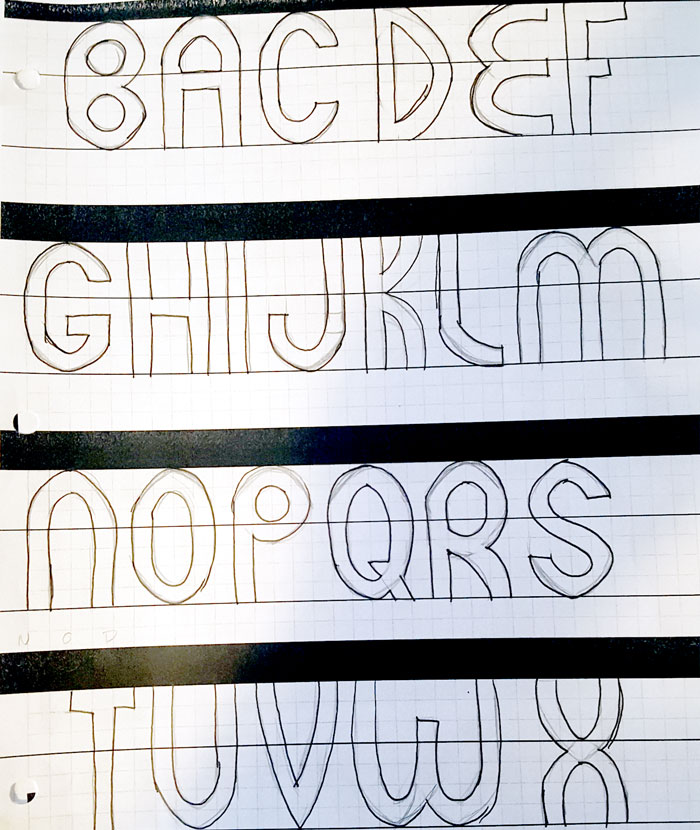 B A C D E F
G H I J K L M
N O P Q R S
N O
T U V W X